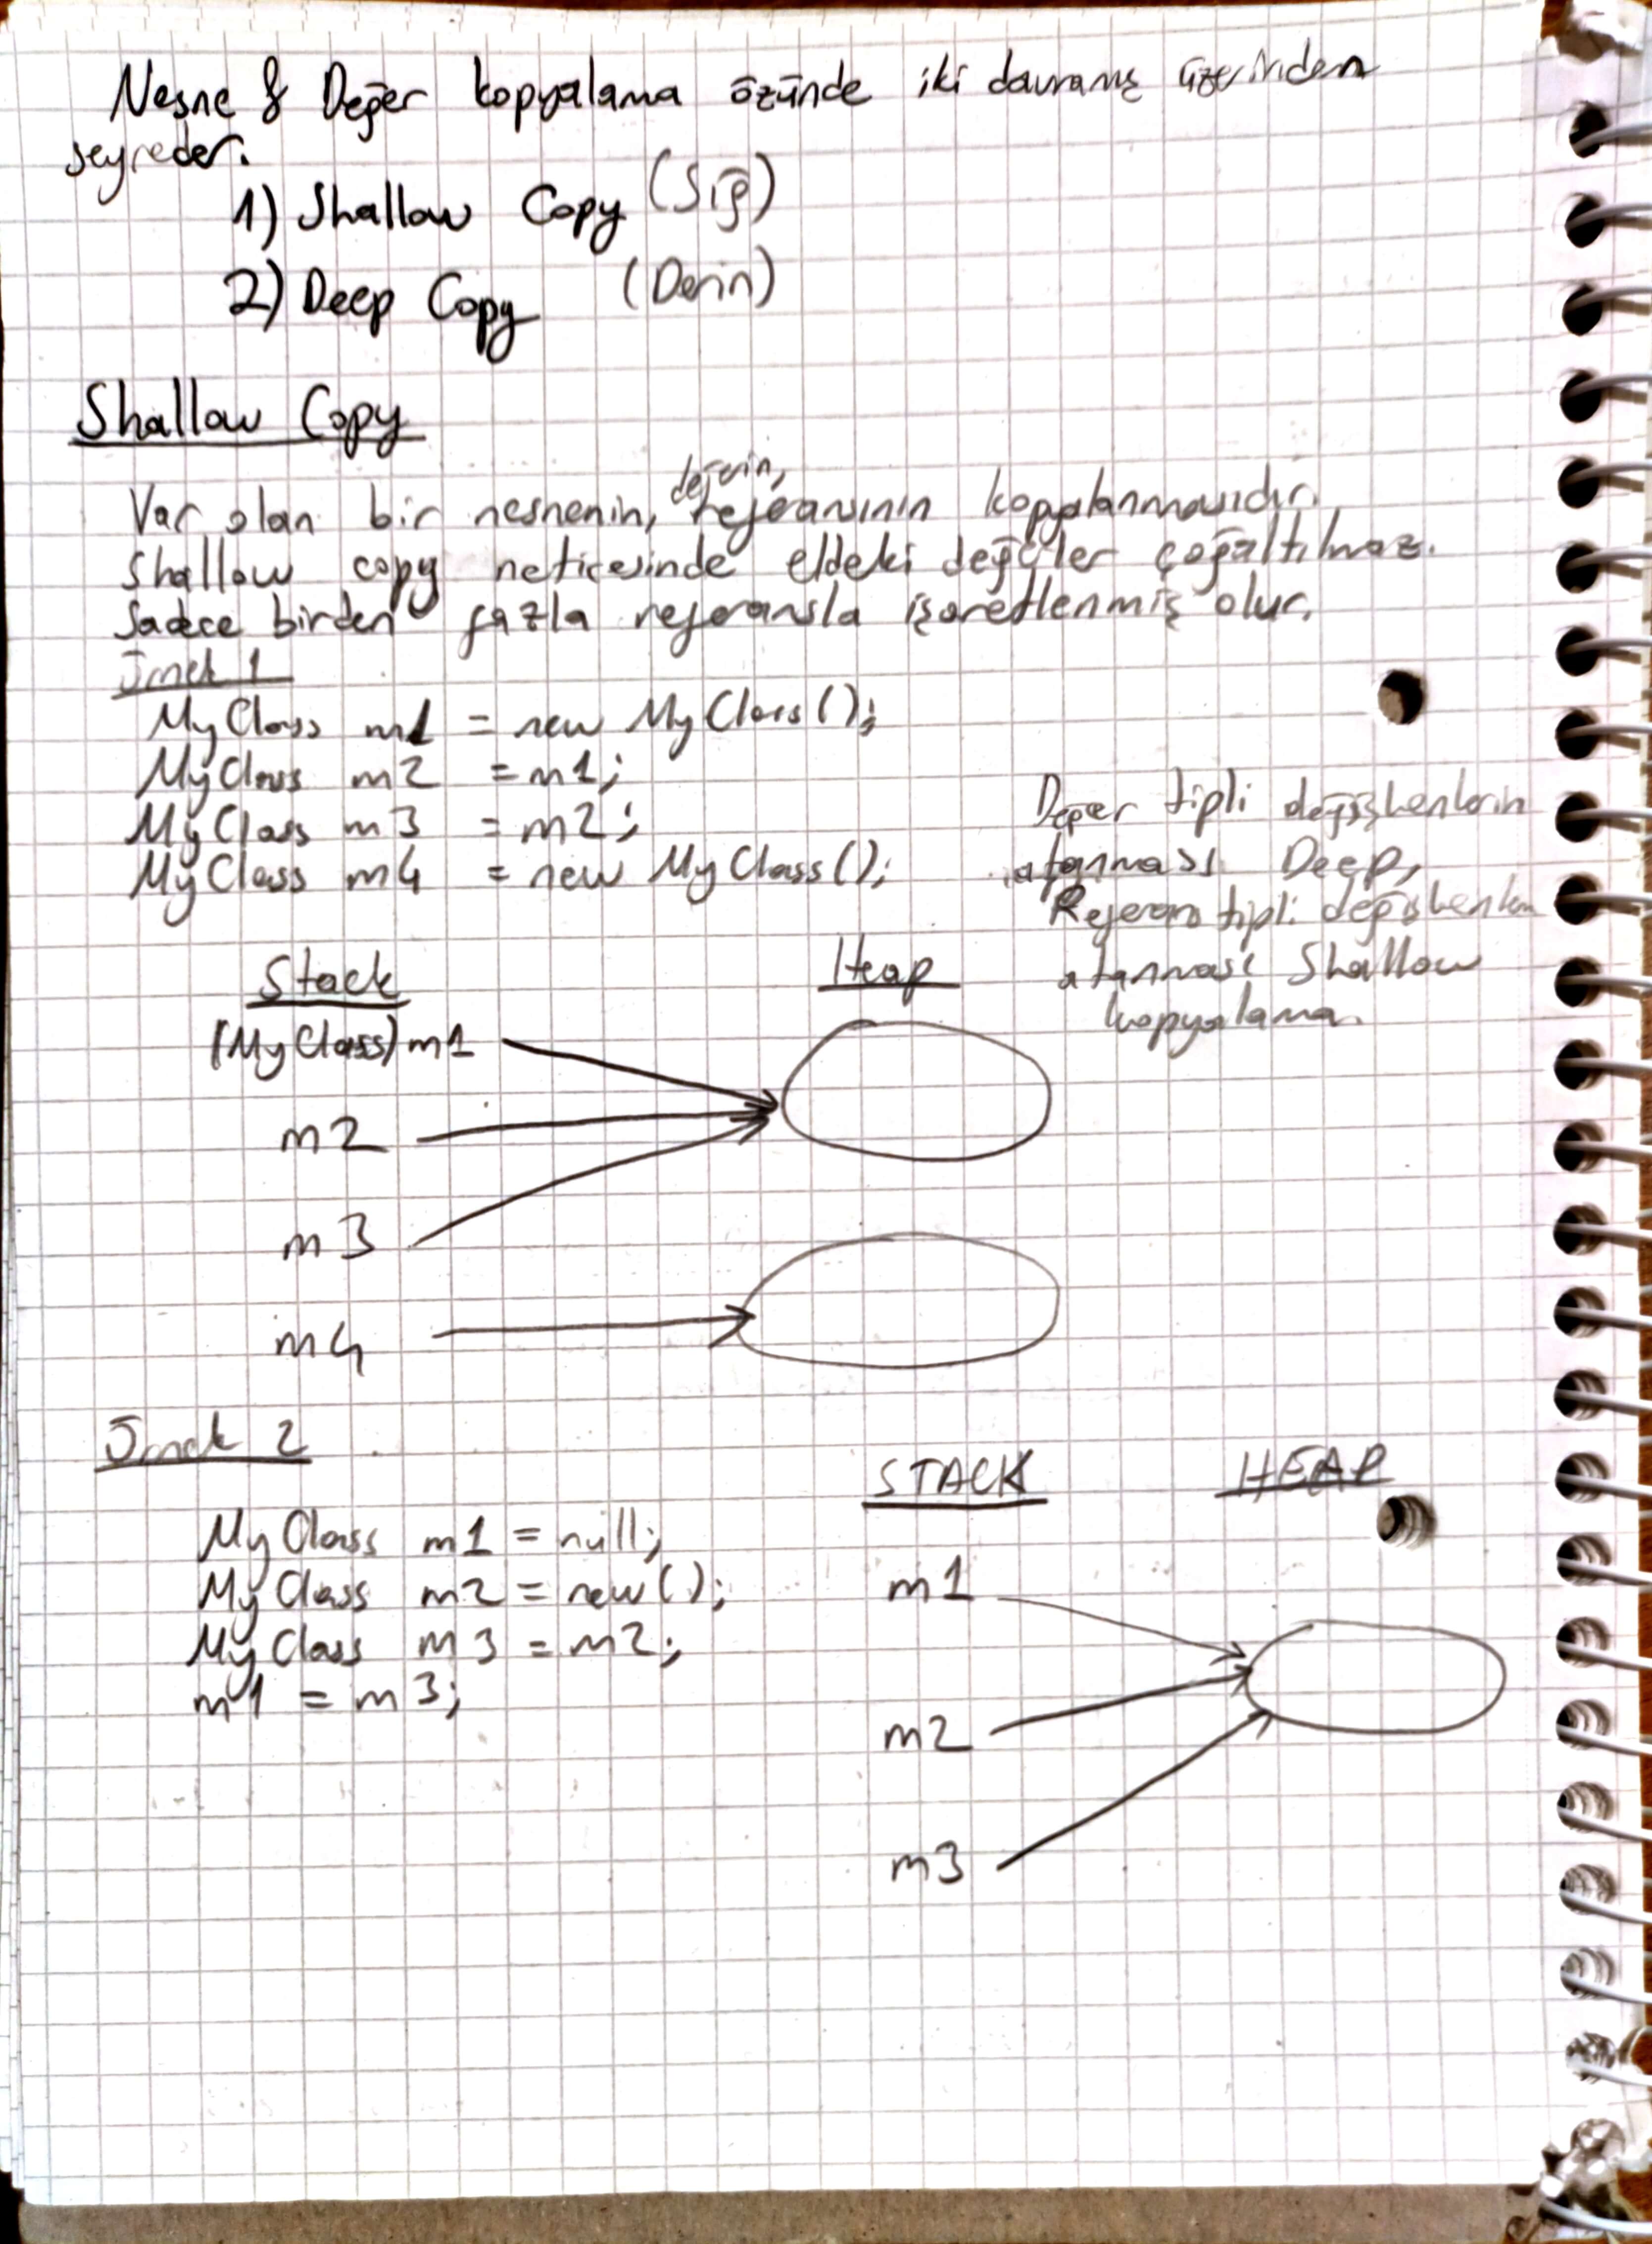 Nesne & Değer kopyalama özünde iki davranış üzerinden
seyreder.
1) Shallow Copy (Sığ)
2) Deep Copy (Derin)
Shallow Copy
değerin,
Var olan bir nesnenin, referansının kopyalanmasıdır.
Shallow copy neticesinde eldeki değerler çoğaltılmaz.
Sadece birden fazla referansla işaretlenmiş olur.
Örnek 1
MyClass m1 = new MyClass();
MyClass m2 = m1;
MyClass m3 = m2;
MyClass m4 = new MyClass();
Değer tipli değişkenlerin
atanması Deep,
Referans tipli değişkenlerin
atanması Shallow
kopyalama.
Stack Heap
(MyClass) m1
m2
m3
m4
Örnek 2
STACK HEAP
MyClass m1 = null;
MyClass m2 = new();
MyClass m3 = m2;
m1 = m3;
m1
m2
m3